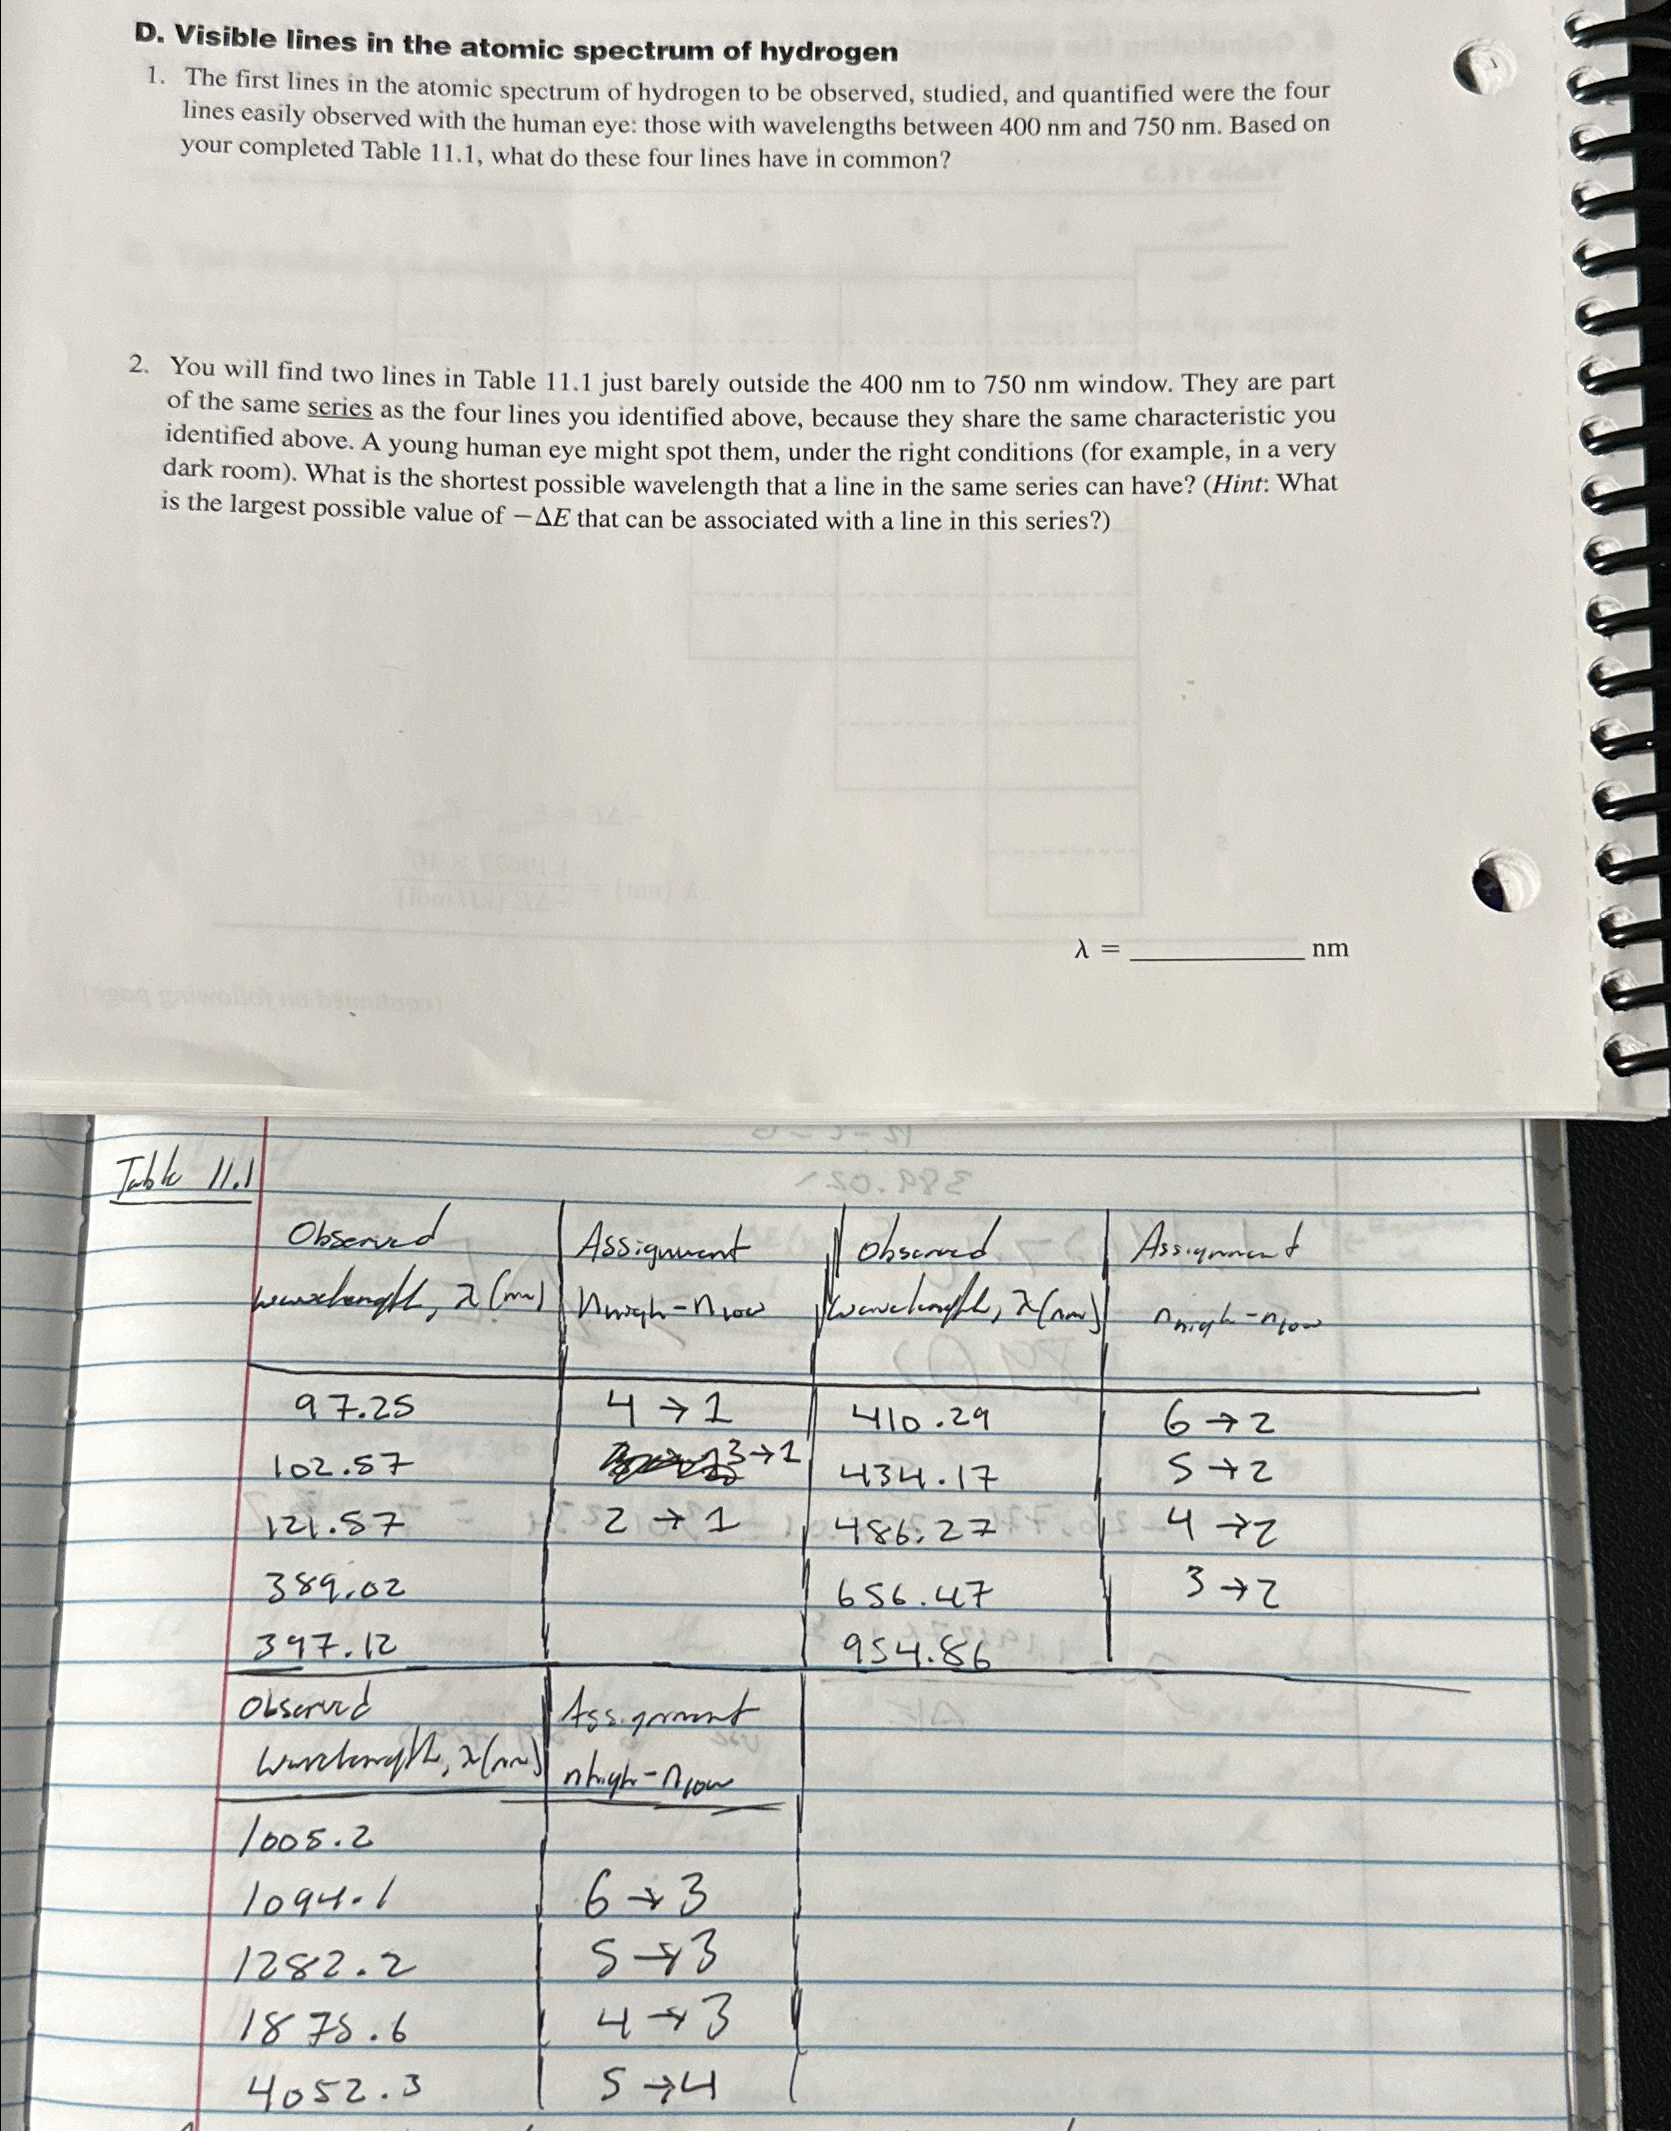 D. Visible lines in the atomic spectrum of hydrogen
1. The first lines in the atomic spectrum of hydrogen to be observed, studied, and quantified were the four
lines easily observed with the human eye: those with wavelengths between 400 nm and 750 nm. Based on
your completed Table 11.1, what do these four lines have in common?
2. You will find two lines in Table 11.1 just barely outside the 400 nm to 750 nm window. They are part
of the same series as the four lines you identified above, because they share the same characteristic you
identified above. A young human eye might spot them, under the right conditions (for example, in a very
dark room). What is the shortest possible wavelength that a line in the same series can have? (Hint: What
is the largest possible value of −ΔE that can be associated with a line in this series?)
λ = __________ nm
Table 11.1
Observed Assignment Observed Assignment
wavelength, λ(nm) nhigh-nlow wavelength, λ(nm) nhigh-nlow
97.25 4→1 410.29 6→2
102.57 3→1 434.17 5→2
121.57 2→1 486.27 4→2
389.02 656.47 3→2
397.12 954.86
Observed Assignment
wavelength, λ(nm) nhigh-nlow
1005.2
1094.1 6→3
1282.2 5→3
1875.6 4→3
4052.3 5→4